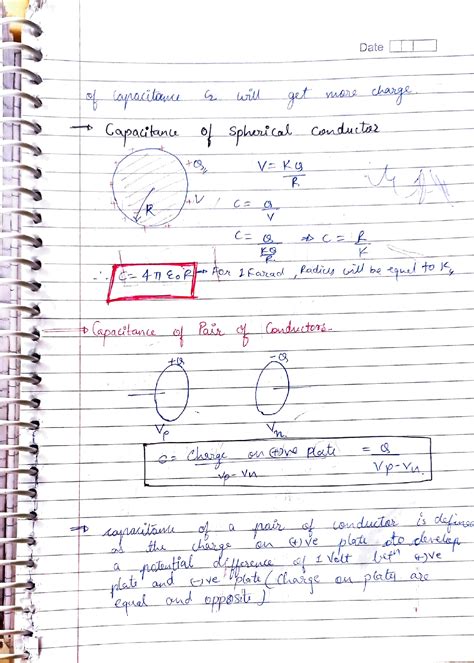 Date
of capacitance C2 will get more charge
→ Capacitance of Spherical Conductor
+Q
V = KQ/R
R
+V
C = Q/V
C = Q/(KQ/R) ⇒ C = R/K
∴ C = 4π ε0 R → For 1 Farad, Radius will be equal to K
→ Capacitance of Pair of Conductors.
+Q -Q
Vp Vn
C = Charge on (+)ve Plate / Vp - Vn = Q / Vp - Vn.
→ capacitance of a pair of conductor is defined
as the charge on (+)ve plate to develop
a potential difference of 1 Volt betn (+)ve
plate and (-)ve plate (Charge on plates are
equal and opposite)